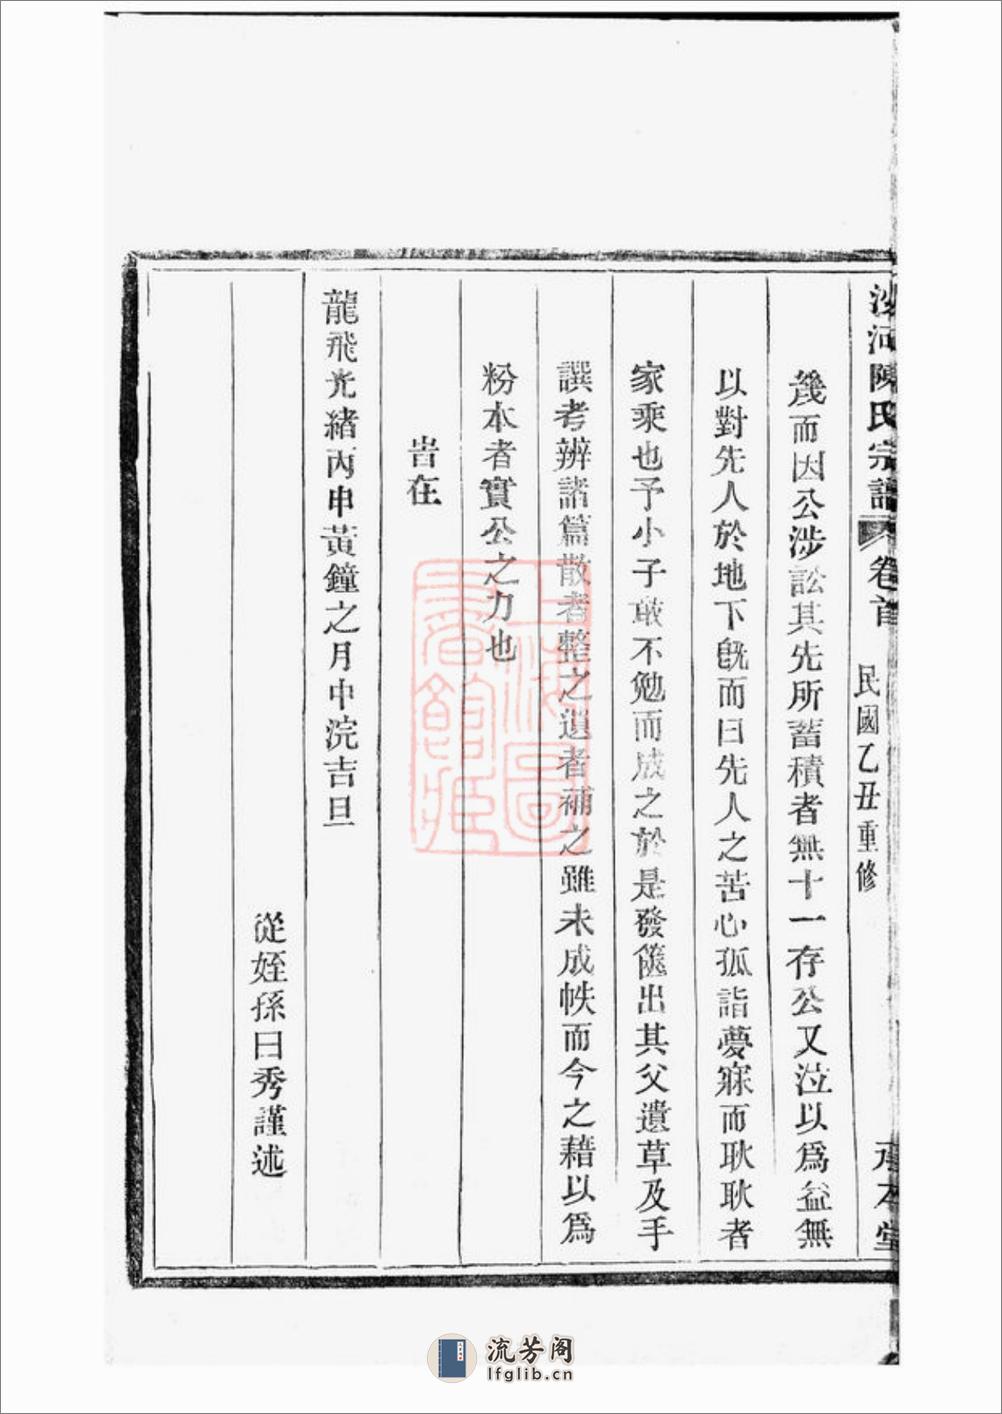 沙河陳氏宗譜 卷首 民國乙丑重修 本堂
幾而因公涉訟其先所蓄積者無十一存公又泣以爲益無
以對先人於地下旣而曰先人之苦心孤詣夢寐而耿耿者
家乘也予小子敢不勉而成之於是發篋出其父遺草及手
譔考辨諸篇散者整之遺者補之雖未成帙而今之藉以爲
粉本者實公之力也
旹在
龍飛光緒丙申黃鐘之月中浣吉旦
從姪孫曰秀謹述
上海圖書館藏
流芳阁
lfglib.cn